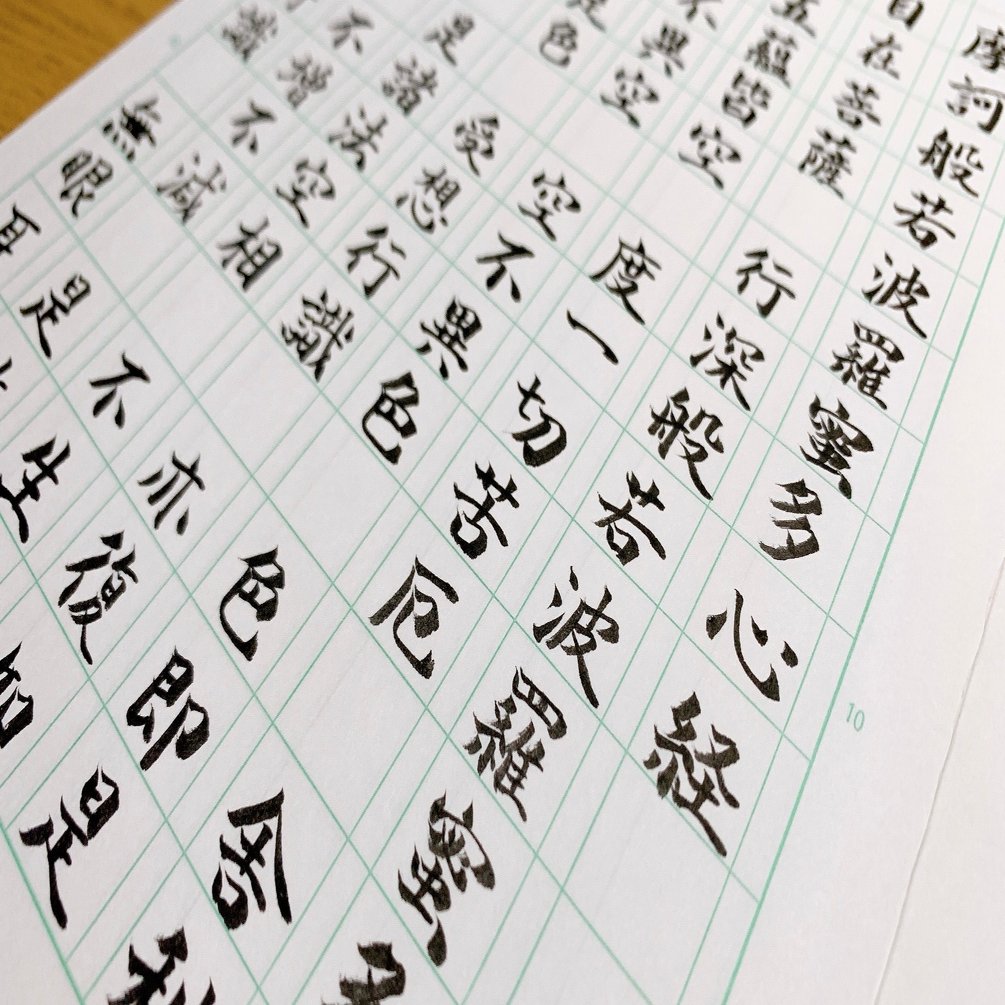 摩訶般若波羅蜜多心経
自在菩薩 行深般若波羅蜜多
五蘊皆空 度一切苦厄 舎利
不異空 空不異色 色即是
是色 受想行識 亦復如
是諸法空相 不生
不増不減 是
識 無眼耳